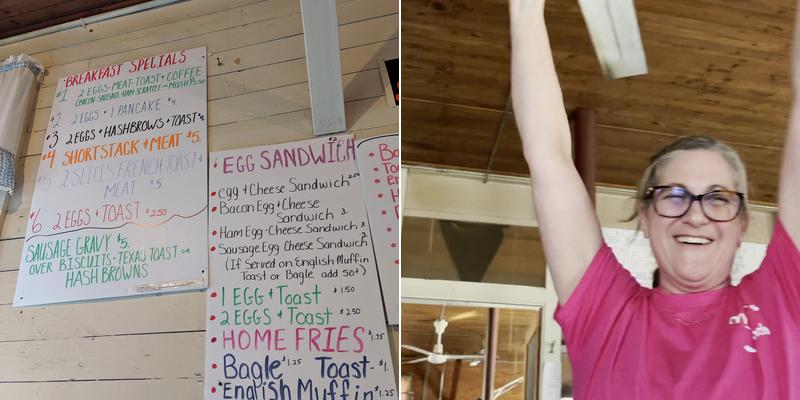 BREAKFAST SPECIALS
#1 2 EGGS-MEAT-TOAST+COFFEE
(BACON-SAUSAGE-HAM-SCRAPPLE-MUSH)
#2 2 EGGS + 1 PANCAKE $4.
#3 2 EGGS + HASHBROWS + TOAST
#4 SHORTSTACK + MEAT $5.
#5 2 SLICES FRENCH TOAST +
MEAT $5.
#6 2 EGGS + TOAST $2.50
SAUSAGE GRAVY $5.
OVER BISCUITS-TEXAS TOAST OR
HASH BROWNS
EGG SANDWICH
egg + Cheese Sandwich
Bacon Egg + Cheese
Sandwich 3.
Ham Egg-Cheese Sandwich
Sausage Egg Cheese Sandwich
(If Served on English Muffin
Toast or Bagle add 50¢)
1 EGG + Toast $1.50
2 EGGS + Toast $2.50
HOME FRIES $1.75
Bagle $1.25 Toast- $1.
English Muffin $1.25